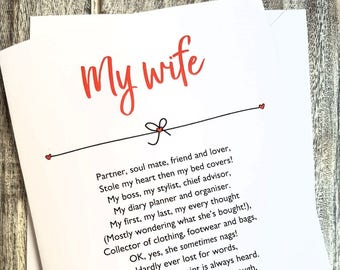 My wife
Partner, soul mate, friend and lover,
Stole my heart then my bed covers!
My boss, my stylist, chief advisor,
My diary planner and organiser.
My first, my last, my every thought
(Mostly wondering what she's bought!),
Collector of clothing, footwear and bags,
OK, yes, she sometimes nags!
Hardly ever lost for words,
is always heard.